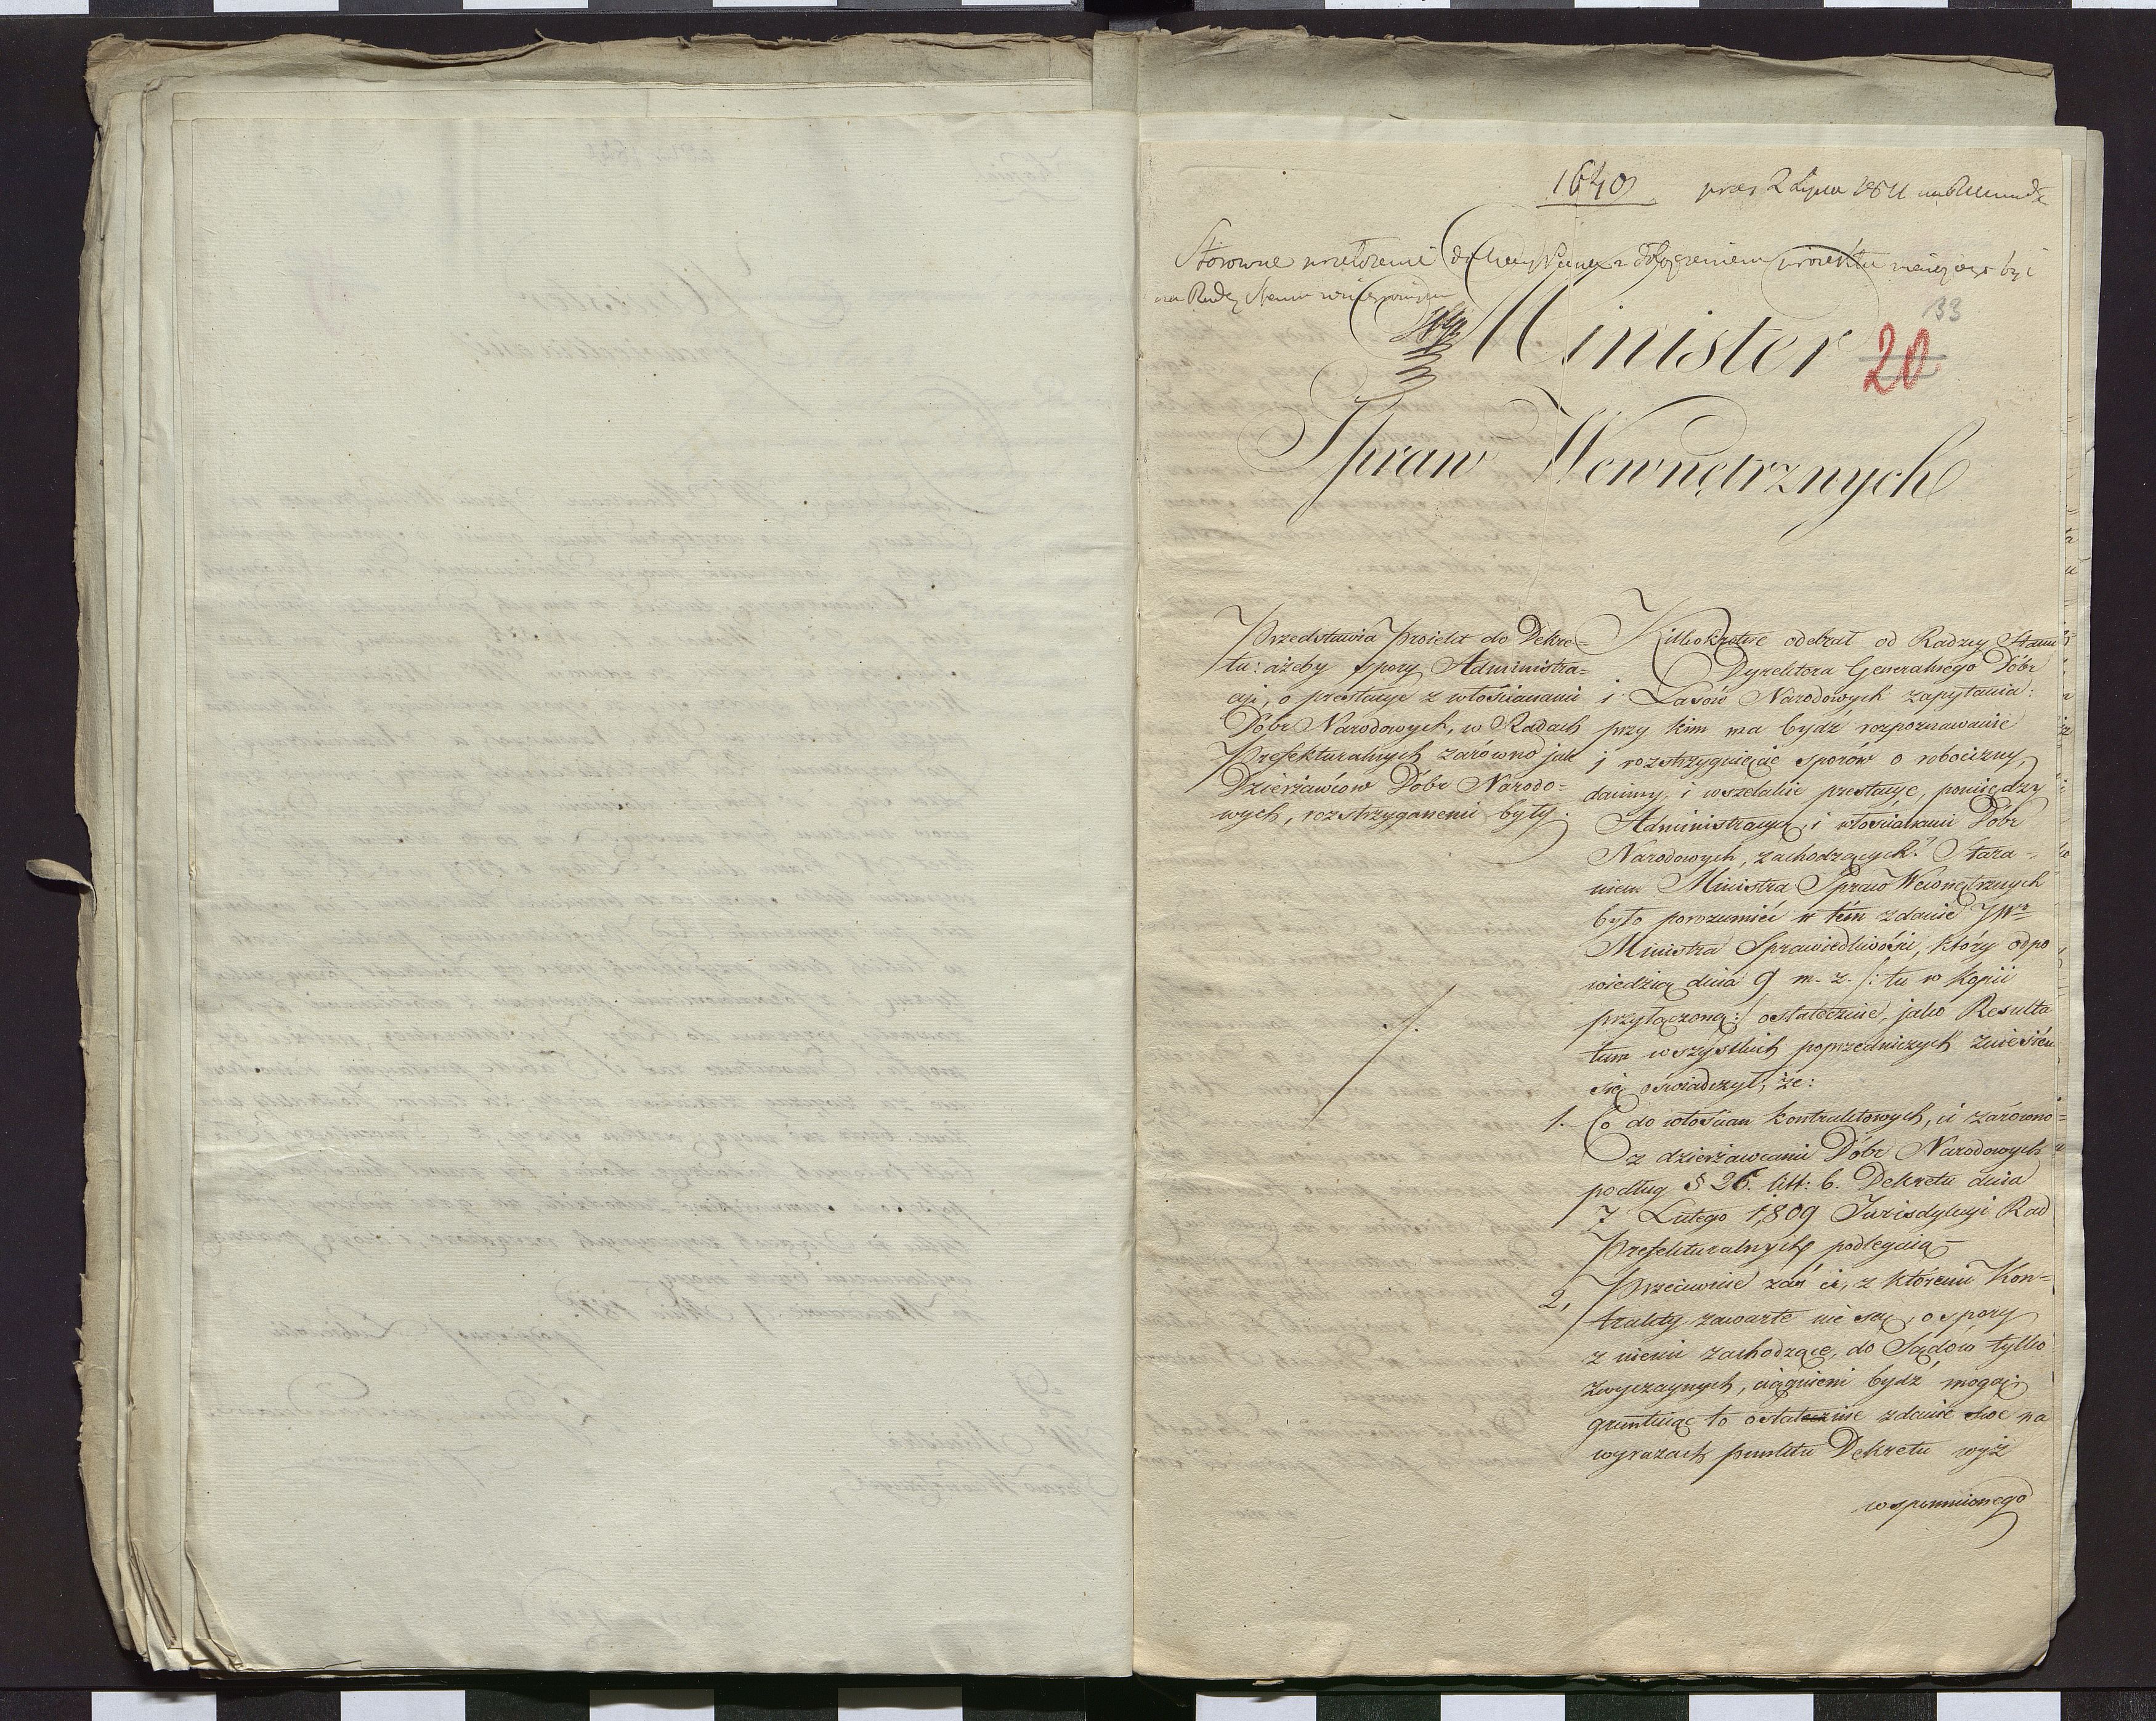 1640 2 Lipca 1811
Stosowne przełożenie z dołączeniem proiektu
na Radę Stanu
133
Minister
20
Spraw Wewnętrznych
Przedstawia Proiekt do Dekre=
tu: ażeby spory Administra=
cyi, o prestacye z włościanami
Dóbr Narodowych, w Radach
Prefekturalnych zarówno jak
Dzierżawców Dóbr Narodo=
wych, rozstrzyganemi były.
Kilkokrotnie odebrał od Radzcy Stanu
Dyrektora Generalnego Dóbr
i Lasów Narodowych zapytania:
przy kim ma bydź rozpoznawanie
i rozstrzygnięcie sporów o robocizny,
daniny, i wszelakie prestacye, pomiędzy
Administracyą, i włościanami Dóbr
Narodowych, zachodzących? Stara=
niem Ministra Spraw Wewnętrznych
było porozumieć w tém zdanie JWo
Ministra Sprawiedliwości, który odpo
wiedzią dnia 9 m. z. /: tu w kopii
przyłączoną :/ ostatecznie, jako Resulta
tum wszystkich poprzedniczych zniesień
się oświadczył, że:
1. Co do włościan kontraktowych, ci zarówno=
z dzierżawcami Dóbr Narodowych
podług § 26. litt: b. Dekretu dnia
7 Lutego 1,809 Jurisdykcyi Rad
Prefekturalnych podlegaią –
2, Przeciwnie zaś ci, z któremi Kon=
trakty zawarte nie są, o spory
z niemi zachodzące, do Sądów tylko
zwyczaynych, ciągnieni bydź mogą;
gruntuiąc to ostatecznie zdanie swe na
wyrazach punktu Dekretu wyż
wspomnionego